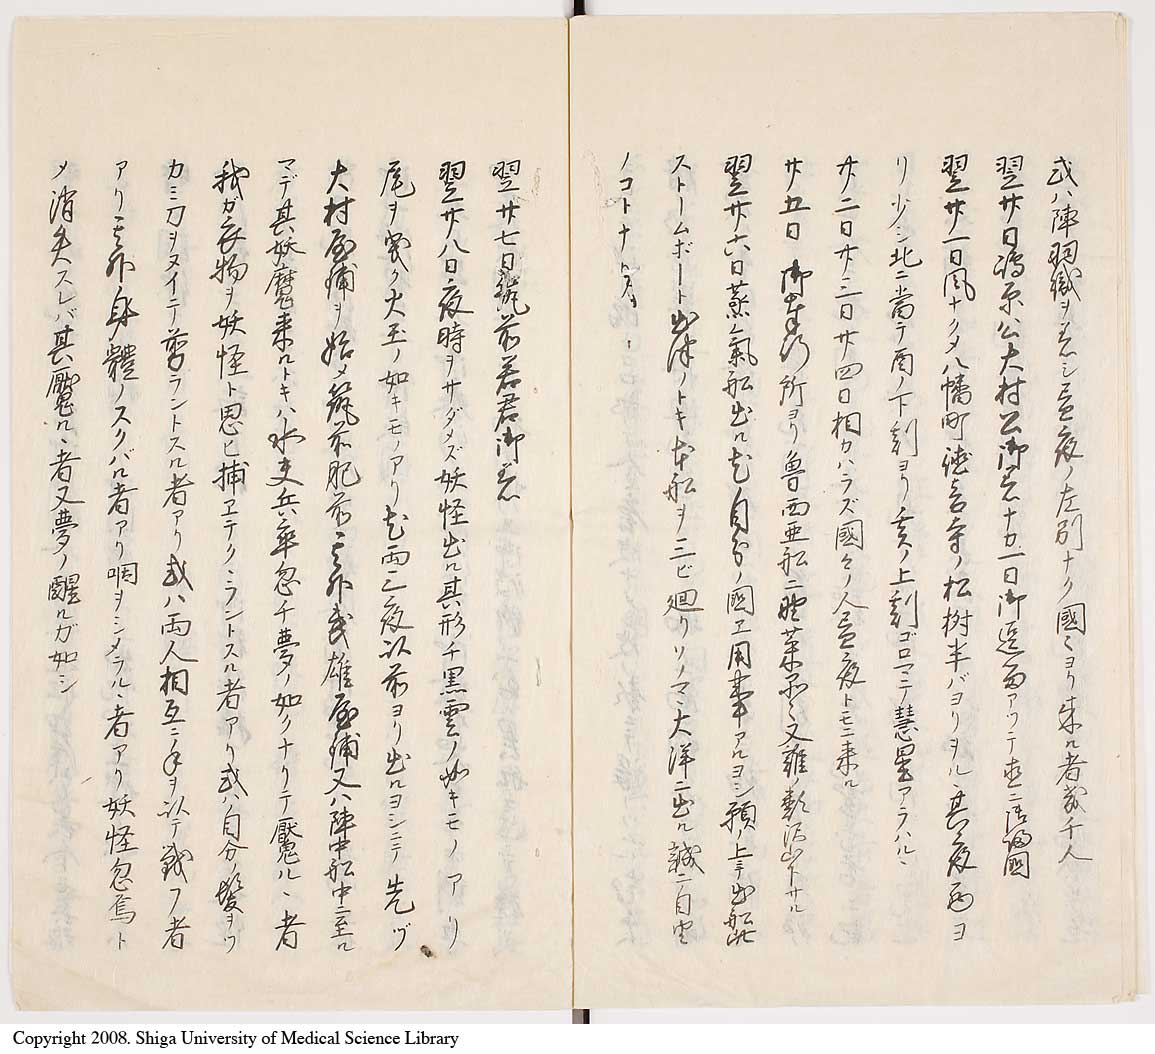 或ハ陣羽織ヲ着シ昼夜ノ左別ナク國々ヨリ来ル者数千人
翌廿日嶋原公大村公御着十力一日御逗留アツテ直ニ御帰國
翌廿一日風ナクメ八幡町徳告寺ノ松樹半バヨリヲル其夜西ヨ
リ少シ北ニ当テ酉ノ下刻ヨリ亥ノ上刻ゴロマテ慧星アラハルヽ
廿二日廿三日廿四日相カハラズ國々ノ人昼夜トモニ来ル
廿五日 御奉行所ヨリ魯西亜船ニ野菜品々又雞ノ類沢山下サル
翌廿六日蒸氣船出ル尤自分ノ國ヱ用事アルヨシ願ノ上ニテ出船此
ストームボート出津ノトキ本船ヲ三ビ廻リソノマヽ大洋ニ出ル誠ニ自由
ノコトナ
翌廿七日筑前若君御着
翌廿八日夜時ヲサダメズ妖怪出ル其形チ黒雲ノ如キモノアリ
尾ヲ家ク犬ノ如キモノアリ尤両三夜以前ヨリ出ルヨシニテ先ヅ
大村屋舗ヲ始メ筑前肥前其外武雄屋舗又ハ陣中船中ニ至ル
マデ其妖魔来ルトキハ水夫兵卒忽チ夢ノ如クナリテ魘ルヽ者
我ガ衣物ヲ妖怪ト思ヒ捕ヱテクヽラントスル者アリ或ハ自分ノ髪ヲツ
カミ刀ヲヌイテ剪ラントスル者アリ或ハ両人相互ニ手ヲ以テ戦フ者
アリ其外身體ノスクバル者アリ咽ヲシメラルヽ者アリ妖怪忽焉ト
メ消失スレバ其魘ルヽ者又夢ノ醒ルガ如シ
Copyright 2008. Shiga University of Medical Science Library